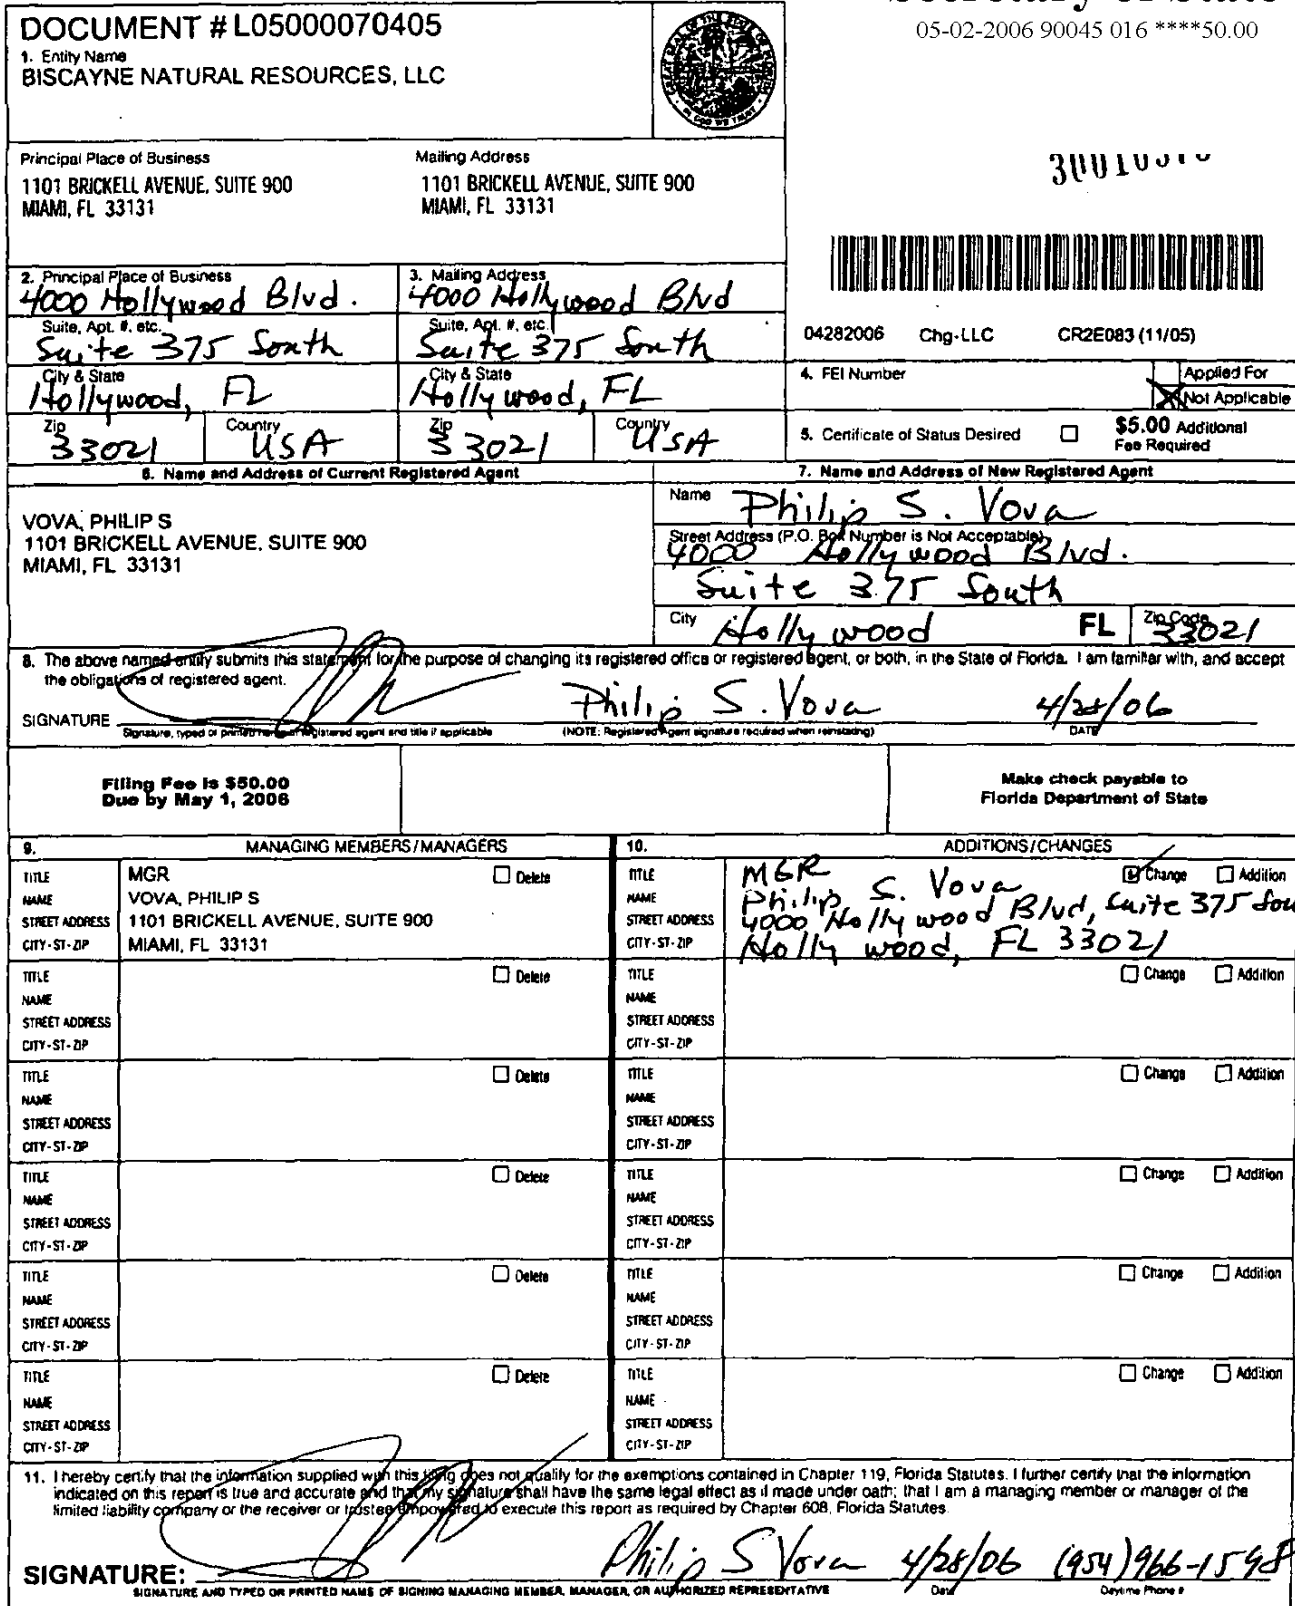 DOCUMENT # L05000070405
1. Entity Name
BISCAYNE NATURAL RESOURCES, LLC
05-02-2006 90045 016 ****50.00
Principal Place of Business
1101 BRICKELL AVENUE, SUITE 900
MIAMI, FL 33131
Mailing Address
1101 BRICKELL AVENUE, SUITE 900
MIAMI, FL 33131
2. Principal Place of Business
4000 Hollywood Blvd.
Suite, Apt. #, etc.
Suite 375 South
City & State
Hollywood, FL
Zip
33021
Country
USA
3. Mailing Address
4000 Hollywood Blvd
Suite, Apt. #, etc.
Suite 375 South
City & State
Hollywood, FL
Zip
33021
Country
USA
04282006 Chg-LLC CR2E083 (11/05)
4. FEI Number
Applied For
Not Applicable
5. Certificate of Status Desired
$5.00 Additional
Fee Required
6. Name and Address of Current Registered Agent
VOVA, PHILIP S
1101 BRICKELL AVENUE, SUITE 900
MIAMI, FL 33131
7. Name and Address of New Registered Agent
Name Philip S. Vova
Street Address (P.O. Box Number is Not Acceptable)
4000 Hollywood Blvd.
Suite 375 South
City Hollywood FL Zip Code 33021
8. The above named entity submits this statement for the purpose of changing its registered office or registered agent, or both, in the State of Florida. I am familiar with, and accept
the obligations of registered agent.
SIGNATURE Philip S. Vova 4/28/06
Signature, typed or printed name of registered agent and title if applicable (NOTE: Registered Agent signature required when reinstating) DATE
Filing Fee is $50.00
Due by May 1, 2006
Make check payable to
Florida Department of State
9. MANAGING MEMBERS/MANAGERS
10. ADDITIONS/CHANGES
TITLE MGR Delete
NAME VOVA, PHILIP S
STREET ADDRESS 1101 BRICKELL AVENUE, SUITE 900
CITY-ST-ZIP MIAMI, FL 33131
TITLE MGR Change Addition
NAME Philip S. Vova
STREET ADDRESS 4000 Hollywood Blvd, Suite 375 Sou
CITY-ST-ZIP Hollywood, FL 33021
TITLE Delete
NAME
STREET ADDRESS
CITY-ST-ZIP
TITLE Change Addition
NAME
STREET ADDRESS
CITY-ST-ZIP
TITLE Delete
NAME
STREET ADDRESS
CITY-ST-ZIP
TITLE Change Addition
NAME
STREET ADDRESS
CITY-ST-ZIP
TITLE Delete
NAME
STREET ADDRESS
CITY-ST-ZIP
TITLE Change Addition
NAME
STREET ADDRESS
CITY-ST-ZIP
TITLE Delete
NAME
STREET ADDRESS
CITY-ST-ZIP
TITLE Change Addition
NAME
STREET ADDRESS
CITY-ST-ZIP
TITLE Delete
NAME
STREET ADDRESS
CITY-ST-ZIP
TITLE Change Addition
NAME
STREET ADDRESS
CITY-ST-ZIP
11. I hereby certify that the information supplied with this filing does not qualify for the exemptions contained in Chapter 119, Florida Statutes. I further certify that the information
indicated on this report is true and accurate and that my signature shall have the same legal effect as if made under oath; that I am a managing member or manager of the
limited liability company or the receiver or trustee empowered to execute this report as required by Chapter 608, Florida Statutes.
SIGNATURE: Philip S Vova 4/28/06 (954)966-1598
SIGNATURE AND TYPED OR PRINTED NAME OF SIGNING MANAGING MEMBER, MANAGER, OR AUTHORIZED REPRESENTATIVE Date Daytime Phone #